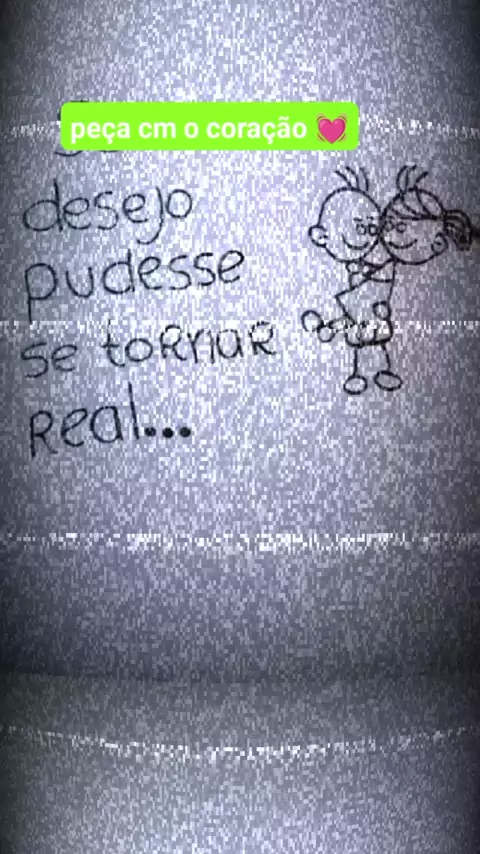 peça cm o coração 💓
desejo
pudesse
se tornar
real...